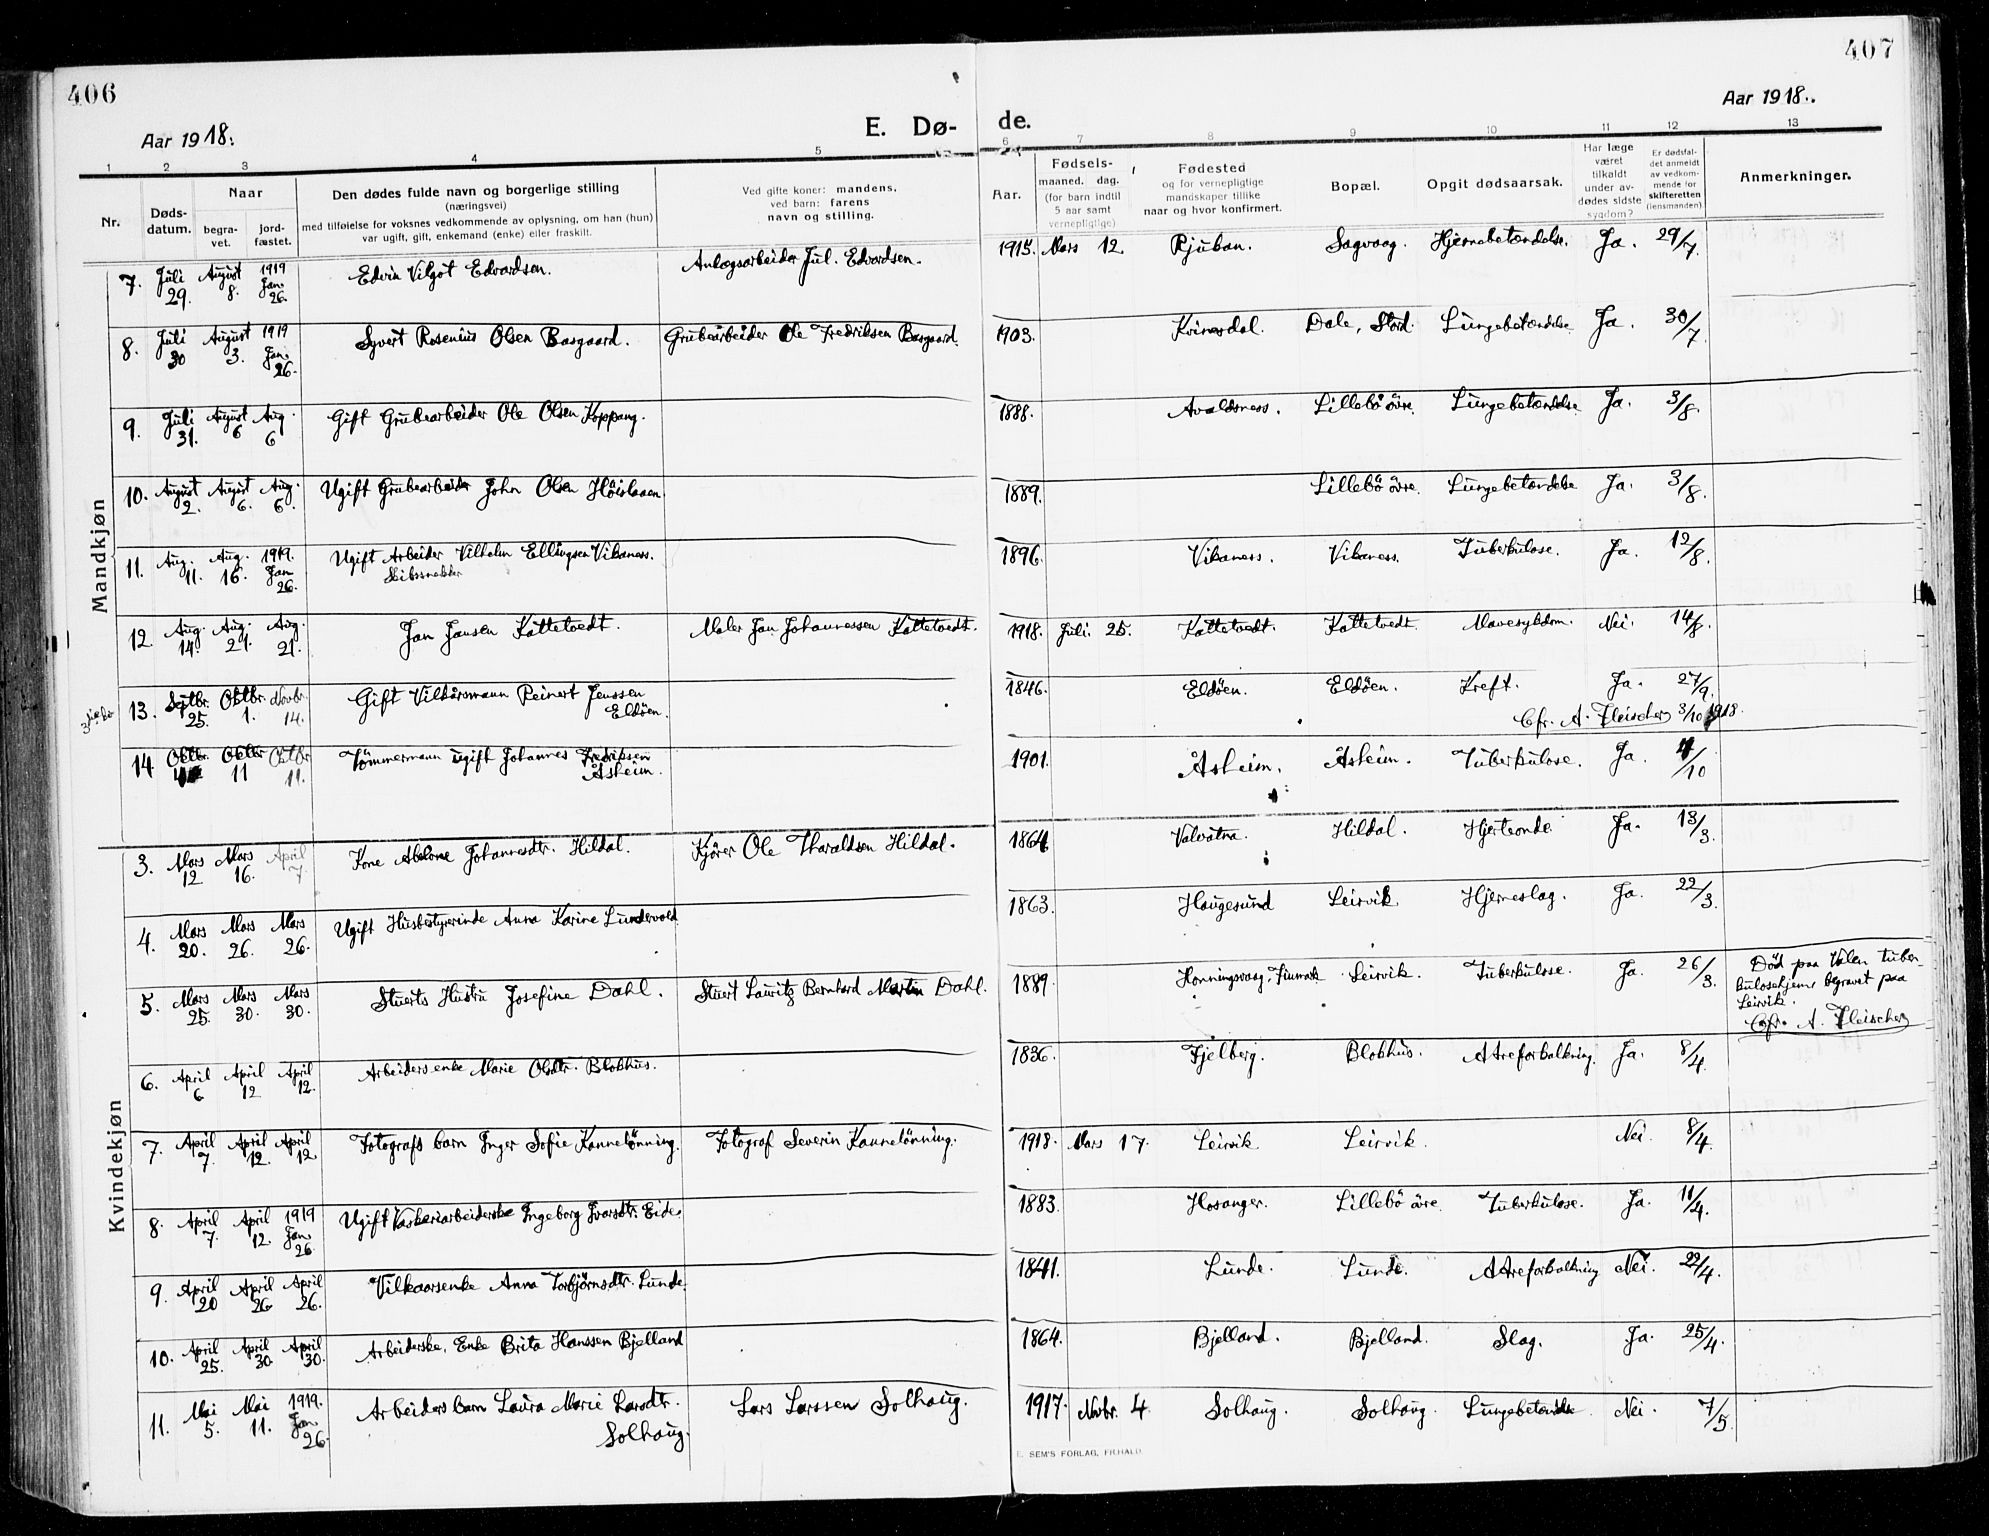 406
407
Aar 1918.
E. Dø-
de.
Aar 1918.
1 2 3 4 5 6 7 8 9 10 11 12 13
Nr.
Døds-
datum.
Naar
begra-
vet.
jord-
fæstet.
Den dødes fulde navn og borgerlige stilling
(næringsvei)
med tilføielse for voksnes vedkommende av oplysning, om han (hun)
var ugift, gift, enkemand (enke) eller fraskilt.
Ved gifte koner: mandens,
ved barn: farens
navn og stilling.
Aar.
Fødsels-
maaned. dag.
(for barn indtil
5 aar samt
vernepligtige)
Fødested
og for vernepligtige
mandskaper tillike
naar og hvor konfirmert.
Bopæl.
Opgit dødsaarsak.
Har læge
været
tilkaldt
under av-
dødes sidste
sygdom?
Er dødsfal-
det anmeldt
av vedkom-
mende for
skifteretten
(lensmanden).
Anmerkninger.
Mandkjøn
7. Juli 29. August 8. 1919 Jan. 26. Edvin Vilgot Edvardsen. Anlægsarbeider Jul. Edvardsen. 1915. Mars 12. Rjukan. Sagvaag. Hjernebetændelse. Ja. 29/7.
8. Juli 30 August 3. 1919 Jan. 26. Syvert Rosenius Olsen Basgaard. Grubearbeider Ole Fredriksen Basgaard. 1903. Kvinesdal. Dale, Stord. Lungebetændelse Ja. 30/7.
9. Juli 31. August 6 Aug. 6 Gift Grubearbeider Ole Olsen Koppang. 1888. Avaldsness. Lillebö övre. Lungebetændelse Ja. 3/8.
10. August 2. August 6. Aug. 6. Ugift Grubearbeider John Olsen 1889. Lillebö övre. Lungebetændelse Ja. 3/8.
11. Aug. 11. Aug. 16. 1919. Jan 26. Ugift Arbeider Vilhelm Ellingsen Vikaness. Skibssnekker 1896. Vikaness. Vikaness. Tuberkulose. Ja. 12/8.
12. Aug. 14. Aug. 21. Aug. 21. Jan Jansen Kattetvedt. Maler Jan Johannessen Kattetvedt. 1918. Juli. 25. Kattetvedt. Kattetvedt. Mavesykdom. Nei. 14/8.
13. Septbr. 25. Oktbr. 1. Novbr. 14. Gift Vilkårsmann Reinert Jenssen Eldöen. 1846. Eldöen. Eldöen. Kreft. Ja. 27/9.
Cfr. A. Fleischer 3/10 1918.
14. Oktbr. Oktbr 11 Oktbr 11. Tömmermann ugift Johannes Fredriksen Åsheim. 1901. Åsheim. Åsheim. Tuberkulose. Ja. 4/10
Kvindekjøn
3. Mars 12 Mars 16. April 7. Kone Abelone Johannesdtr. Hildal. Kjörer Ole Tharaldsen Hildal. 1864. Valvatna. Hildal. Hjerteonde Ja. 13/3.
4. Mars 20. Mars 26. Mars 26. Ugift Husbestyrerinde Anna Karine Lundevold 1863. Haugesund Leirvik Hjerneslag. Ja. 22/3.
5. Mars 25. Mars 30. Mars 30. Stuerts Hustru Josefine Dahl. Stuert Lauritz Bernhard Martin Dahl. 1889. Honningsvaag, Finmark Leirvik. Tuberkulose. Ja. 26/3. Död paa Valen tuber-
kulosehjem, begravet paa
Leirvik.
Cfr. A. Fleischer
6. April 6 April 12 April 12. Arbeidersenke Marie Olsdtr. Blokhus. 1836. Fjelberg. Blokhus. Atreforkalkning. Ja. 8/4.
7. April 7. April 12. April 12 Fotografs barn Inger Sofie Kannelönning. Fotograf Severin Kannelönning. 1918. Mars 17. Leirvik Leirvik. Nei. 8/4.
8. April 7. April 12. 1919 Jan. 26. Ugift Vaskeriarbeiderske Ingeborg Ivarsdtr. Eide. 1883. Hosanger. Lillebö övre. Tuberkulose. Ja. 11/4.
9. April 20 April 26. April 26. Vilkaarsenke Anna Torbjörnsdtr. Lunde. 1841. Lunde. Lunde. Atreforkalkning Nei. 22/4.
10. April 25. April 30. April 30. Arbeiderske, Enke Brita Hanssen Bjelland 1864. Bjelland. Bjelland. Slag. Ja. 25/4.
11. Mai 5. Mai 11. 1919. Jan. 26. Arbeiders barn Laura Marie Larsdtr. Solhaug. Lars Larssen Solhaug. 1917. Novbr. 4. Solhaug. Solhaug. Lungebetændelse. Nei. 7/5.
E. SEM'S FORLAG, FR.HALD.